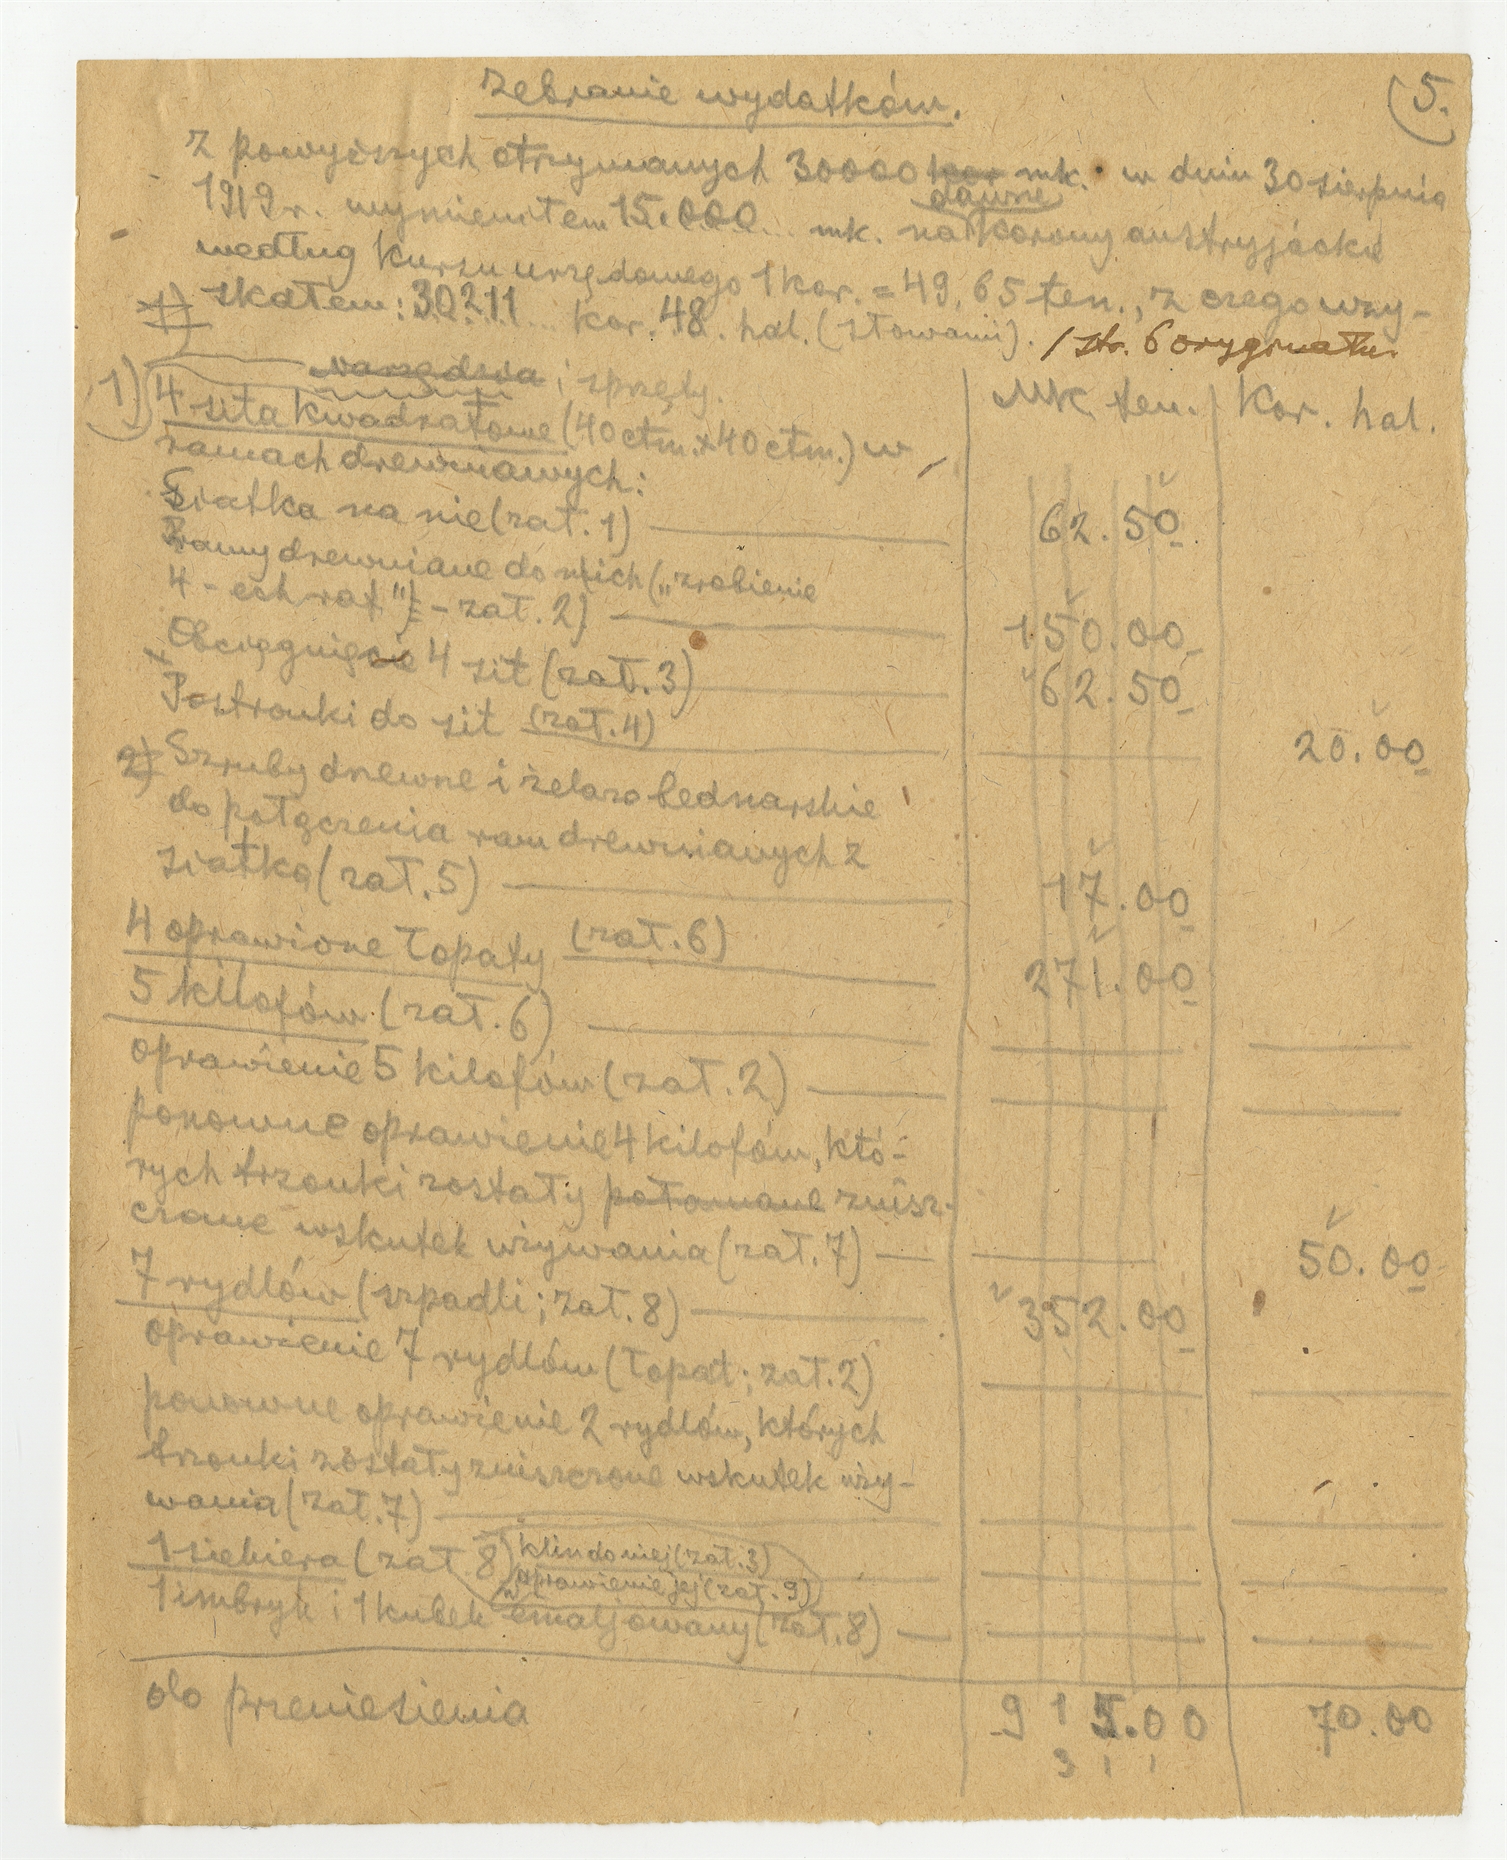 Zebranie wydatków.
(5.
z powyższych otrzymanych 30000 kor mk. w dniu 30 sierpnia
dawne
1919 r. wymieniłem 15.000... mk. na korony austryjackie
według kursu urzędowego 1 kor. = 49,65 fen., z czego uzy-
1) skałem: 30211... kor. 48. hal. (słowami). / str. 6 oryginału.
narzędzia i sprzęty.
Mk fen. Kor. hal.
1) 4 sita kwadratowe (40 ctm. x 40 ctm.) w
ramach drewnianych:
Siatka na nie (zał. 1) 62.50
Ramy drewniane do nich („zrobienie
4-ech raf") - zał. 2) 150.00
Obciągnięcie 4 sit (zał. 3) 62.50
Postronki do sit (zał. 4) 20.00
2) Szruby drewne i żelazo bednarskie
do połączenia ram drewnianych z
siatką (zał. 5) 17.00
4 oprawione łopaty (zał. 6) 271.00
5 kilofów (zał. 6)
oprawienie 5 kilofów (zał. 2)
ponowne oprawienie 4 kilofów, któ-
rych trzonki zostały połamane znisz-
czone wskutek używania (zał. 7) 50.00
7 rydlów (szpadli; zał. 8) 352.00
oprawienie 7 rydlów (łopat; zał. 2)
ponowne oprawienie 2 rydlów, których
trzonki zostały zniszczone wskutek uży-
wania (zał. 7)
1 siekiera (zał. 8) klin do niej (zał. 3)
oprawienie jej (zał. 9)
1 imbryk i 1 kubek emaljowany (zał. 8)
do przeniesienia 915.00 70.00
3 1 1